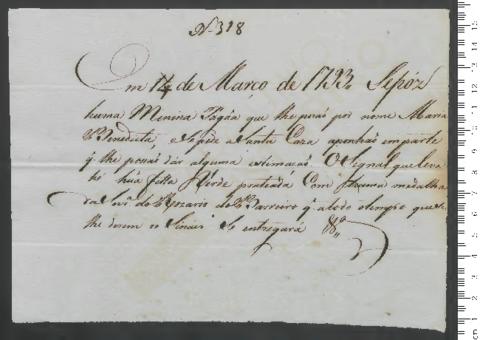 N. 318
Em 14 de Março de 1793 Se pôz
huma Menina Pagãa que lhe porás por nome Maria
Benedicta, e Se pede a Santa Caza aponhaõ em parte
q lhe posaõ dar alguma estimacaõ O Signal que leva
hé huã fitta Verde prateada Com huma medalha
da Snrª do Rosario do Barreiro q a todo o tempo que
lhe derem o Sinaes Se entregará